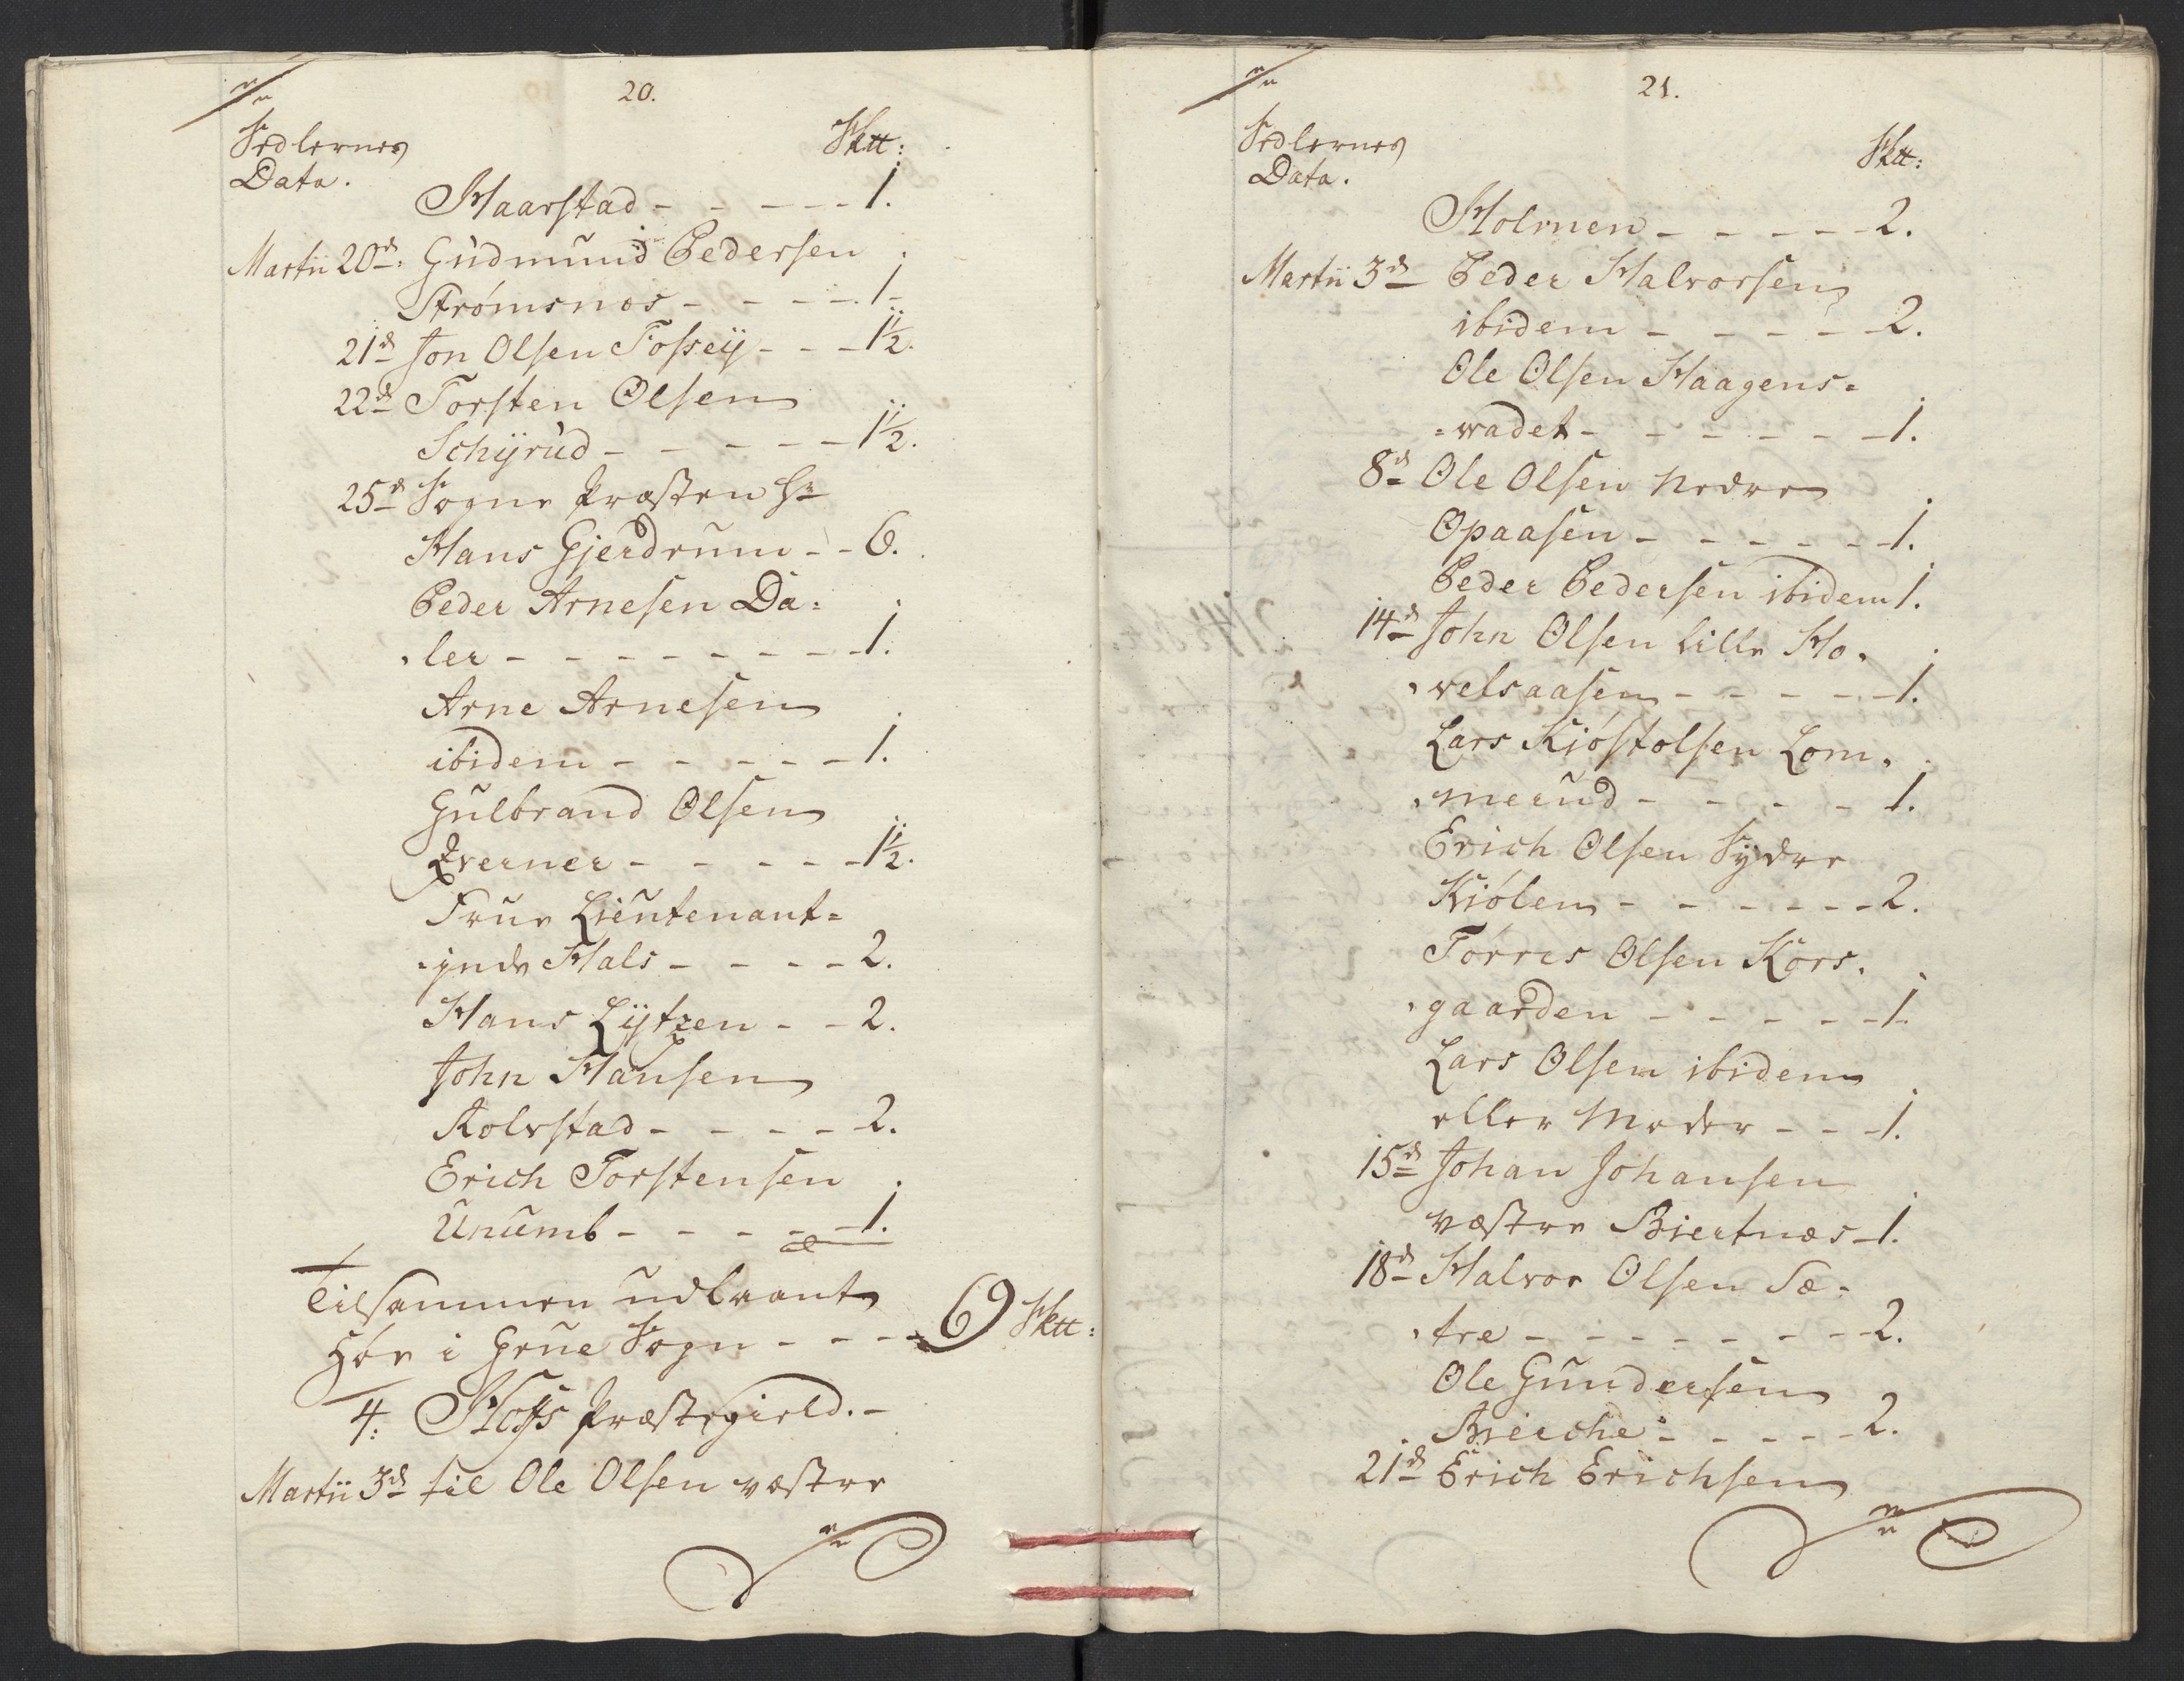 20.
Sedlernes
Data.
Sktt:
Haarstad - - - - - 1.
Martii 20d: Gudmund Pedersen
Strømsnæs - - - - 1.
21d Jon Olsen Fossey - - - 1½.
22d Torsten Olsen
Schÿrud - - - - - 1½.
25d Sogne Præsten Hr
Hans Gjerdrum - - 6.
Peder Arnesen Da=
=ler - - - - - - - - 1.
Arne Arnesen
ibidem - - - - - 1.
Gulbrand Olsen
Qverner - - - - - 1½.
Frue Lieutenant=
=inde Hals - - - - 2.
Hans Lÿtzen - - 2.
John Hansen
Kolvstad - - - - 2.
Erich Torstensen
Unumb - - - - - 1.
Tilsammen udlaant
Høe i Grue Sogn - - - - 69 Sktt:
4: Hofs Præstegield.
Martii 3d til Ole Olsen væstre
21.
Sedlernes
Data.
Sktt:
Holmen - - - - - 2.
Martii 3d Peder Halvorsen
ibidem - - - - - 2.
Ole Olsen Haagens=
=vadet - - - - - - 1.
8d Ole Olsen Nedre
Opaasen - - - - - 1.
Peder Pedersen ibidem 1.
14d John Olsen Lille Ho=
=velsaasen - - - - - 1.
Lars Kiøstolsen Lom=
=merud - - - - 1.
Erich Olsen Sydre
Kiølen - - - - - - 2.
Torres Olsen Kors=
=gaarden - - - - - 1.
Lars Olsen ibidem
eller Moder - - - 1.
15d Johan Johansen
væstre Biertnæs - 1.
18d Halvor Olsen Sæ=
=tre - - - - - - - 2.
Ole Gundersen
Bierche - - - - - 2.
21d Erich Erichsen